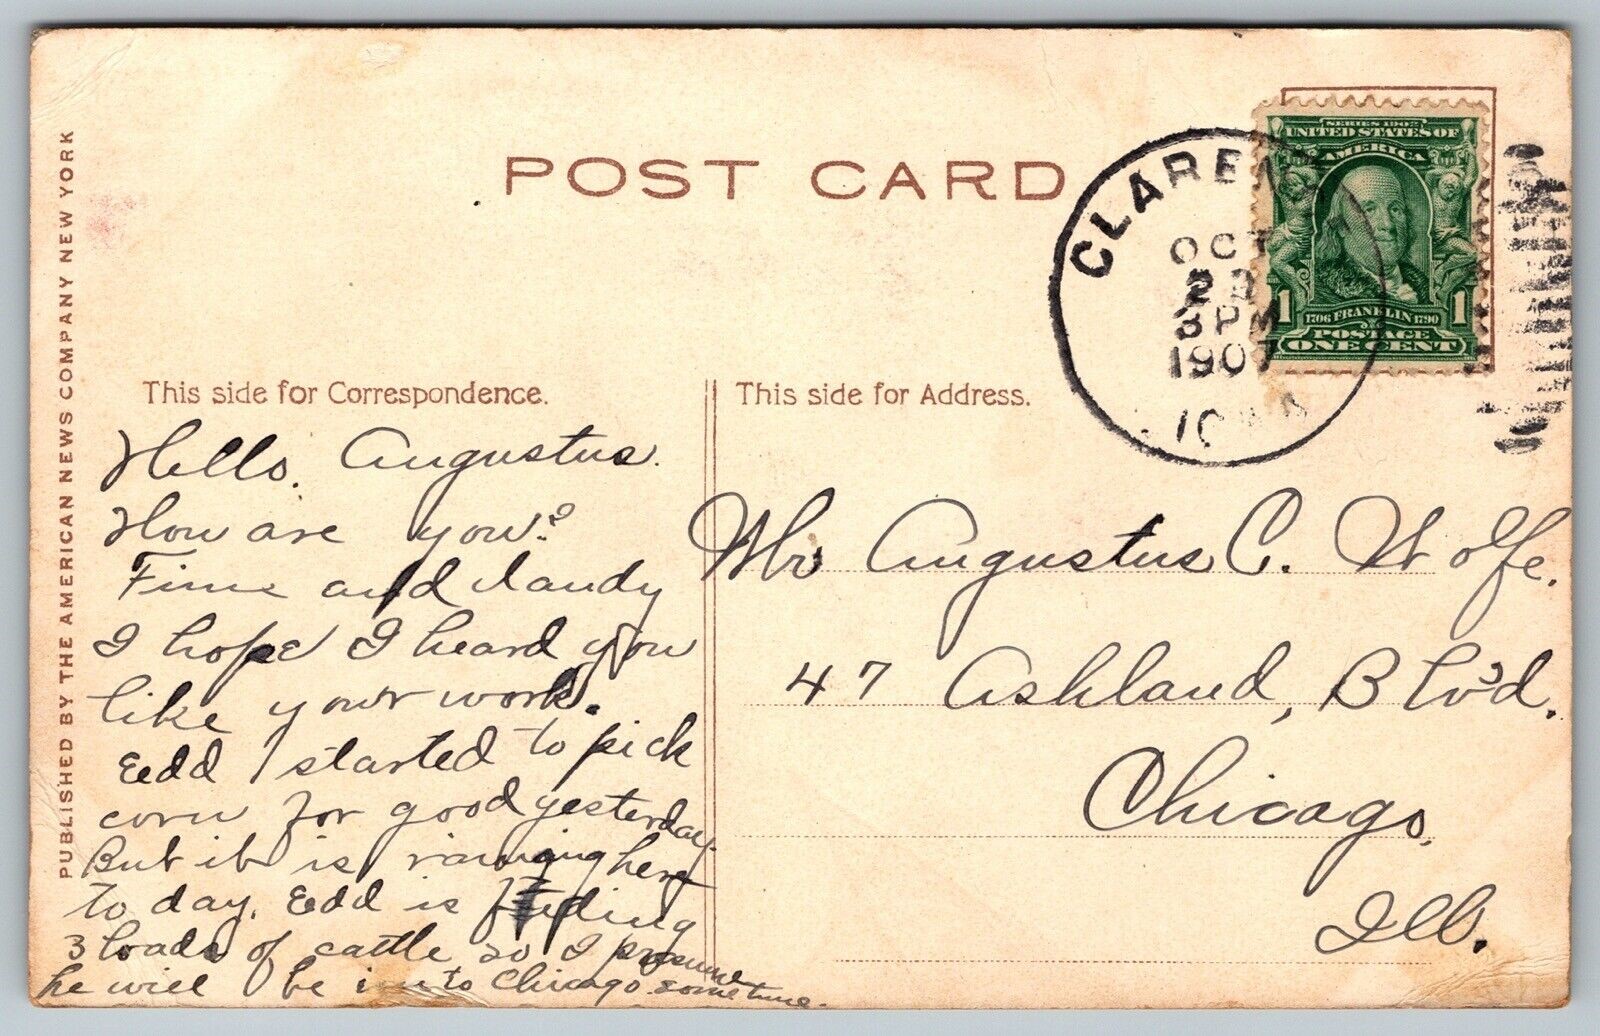 POST CARD
PUBLISHED BY THE AMERICAN NEWS COMPANY NEW YORK
SERIES 1902
UNITED STATES OF
AMERICA
1 1
1706 FRANKLIN 1790
POSTAGE
ONE CENT
OCT
8 PM
1907
IOWA
This side for Correspondence.
Hello. Augustus.
How are you?
Fine and dandy
I hope I heard you
like your work.
Eedd started to pick
corn for good yesterday.
But it is rainging here
to day. Eedd is feeding
3 loads of cattle so I presume
he will be in to Chicago sometime.
This side for Address.
Mr Augustus C. Wolfe.
47 Ashland, Blv'd.
Chicago,
Ill.